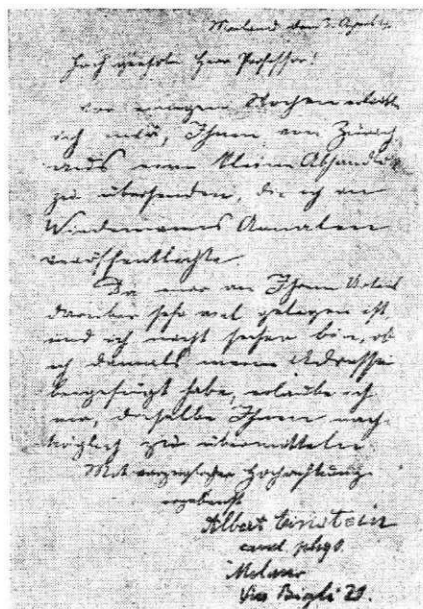 Mailand den 3. April
Hoch geehrter Herr Professor!
Vor einigen Wochen erlaubte
ich mir, Ihnen von Zürich
aus eine kleine Abhandlung
zu übersenden, die ich in
Wiedemanns Annalen
veröffentlichte.
Da mir an Ihrem Urteil
darüber sehr viel gelegen ist,
und ich nicht sicher bin, ob
ich damals meine Adresse
beigefügt habe, erlaube ich
mir, dieselbe Ihnen nach-
träglich zu übermitteln.
Mit vorzüglicher Hochachtung
ergebenst
Albert Einstein
cand. phys.
Milano
Via Bigli 21.